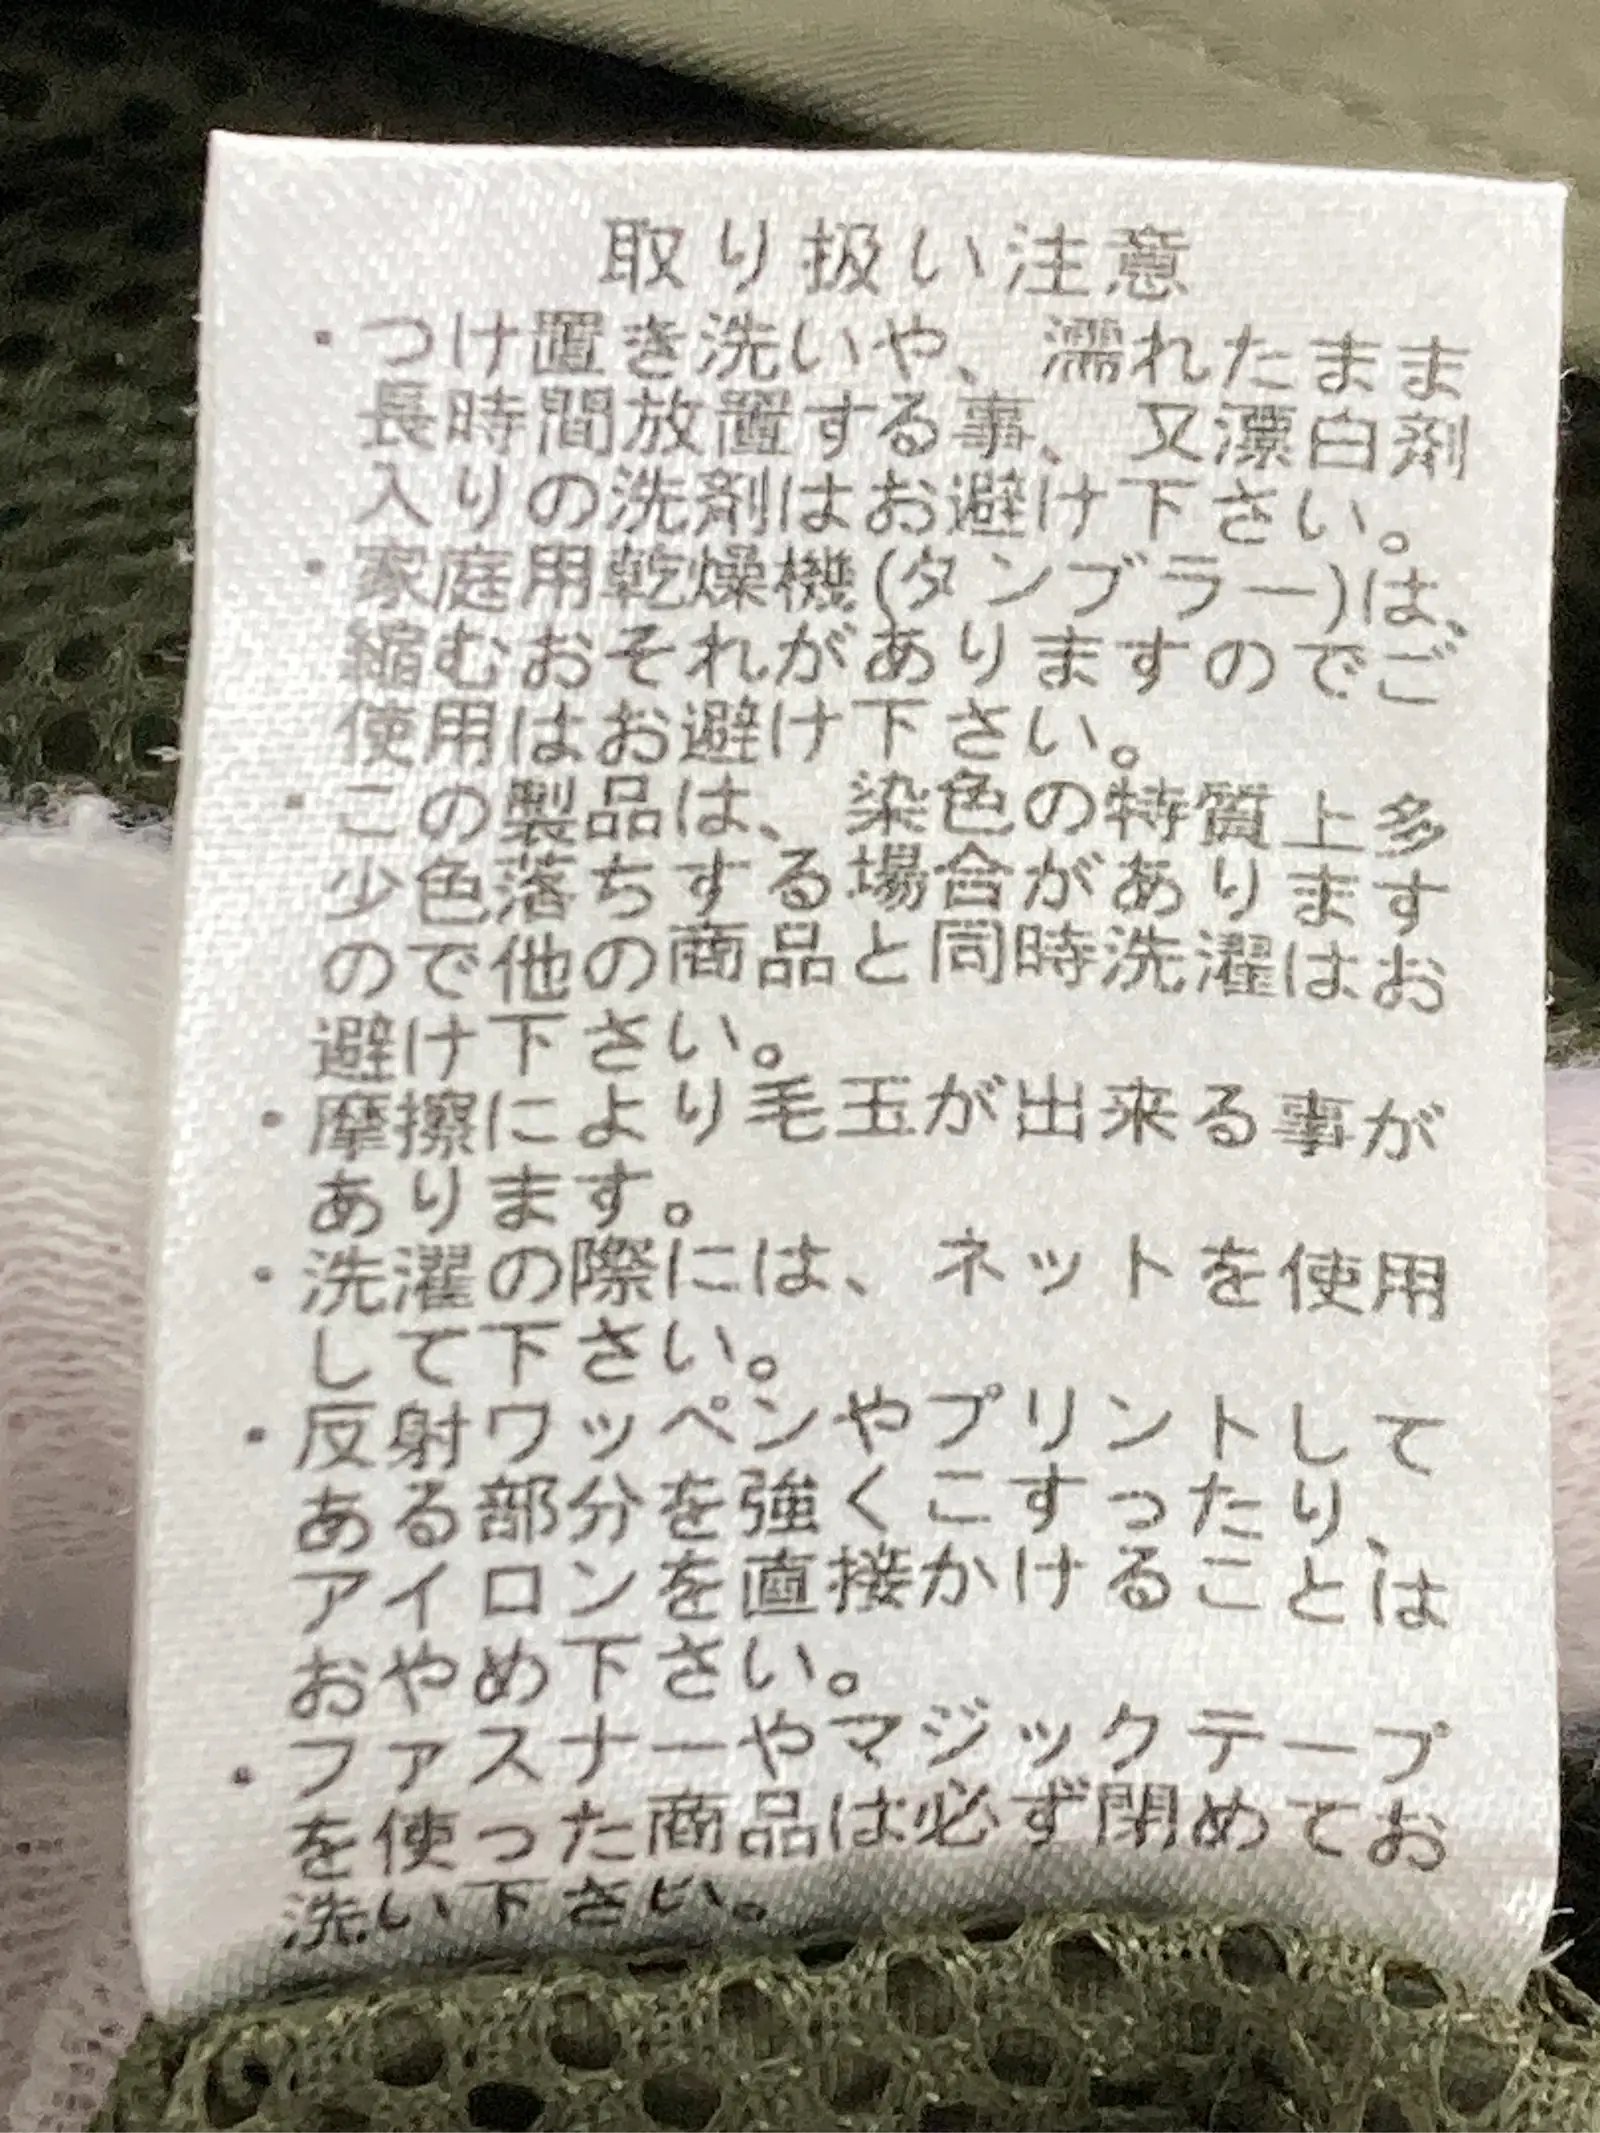 取り扱い注意
・つけ置き洗いや、濡れたまま
長時間放置する事、又漂白剤
入りの洗剤はお避け下さい。
・家庭用乾燥機(タンブラー)は、
縮むおそれがありますのでご
使用はお避け下さい。
・この製品は、染色の特質上多
少色落ちする場合があります
ので他の商品と同時洗濯はお
避け下さい。
・摩擦により毛玉が出来る事が
あります。
・洗濯の際には、ネットを使用
して下さい。
・反射ワッペンやプリントして
ある部分を強くこすったり、
アイロンを直接かけることは
おやめ下さい。
・ファスナーやマジックテープ
を使った商品は必ず閉めてお
洗い下さい。